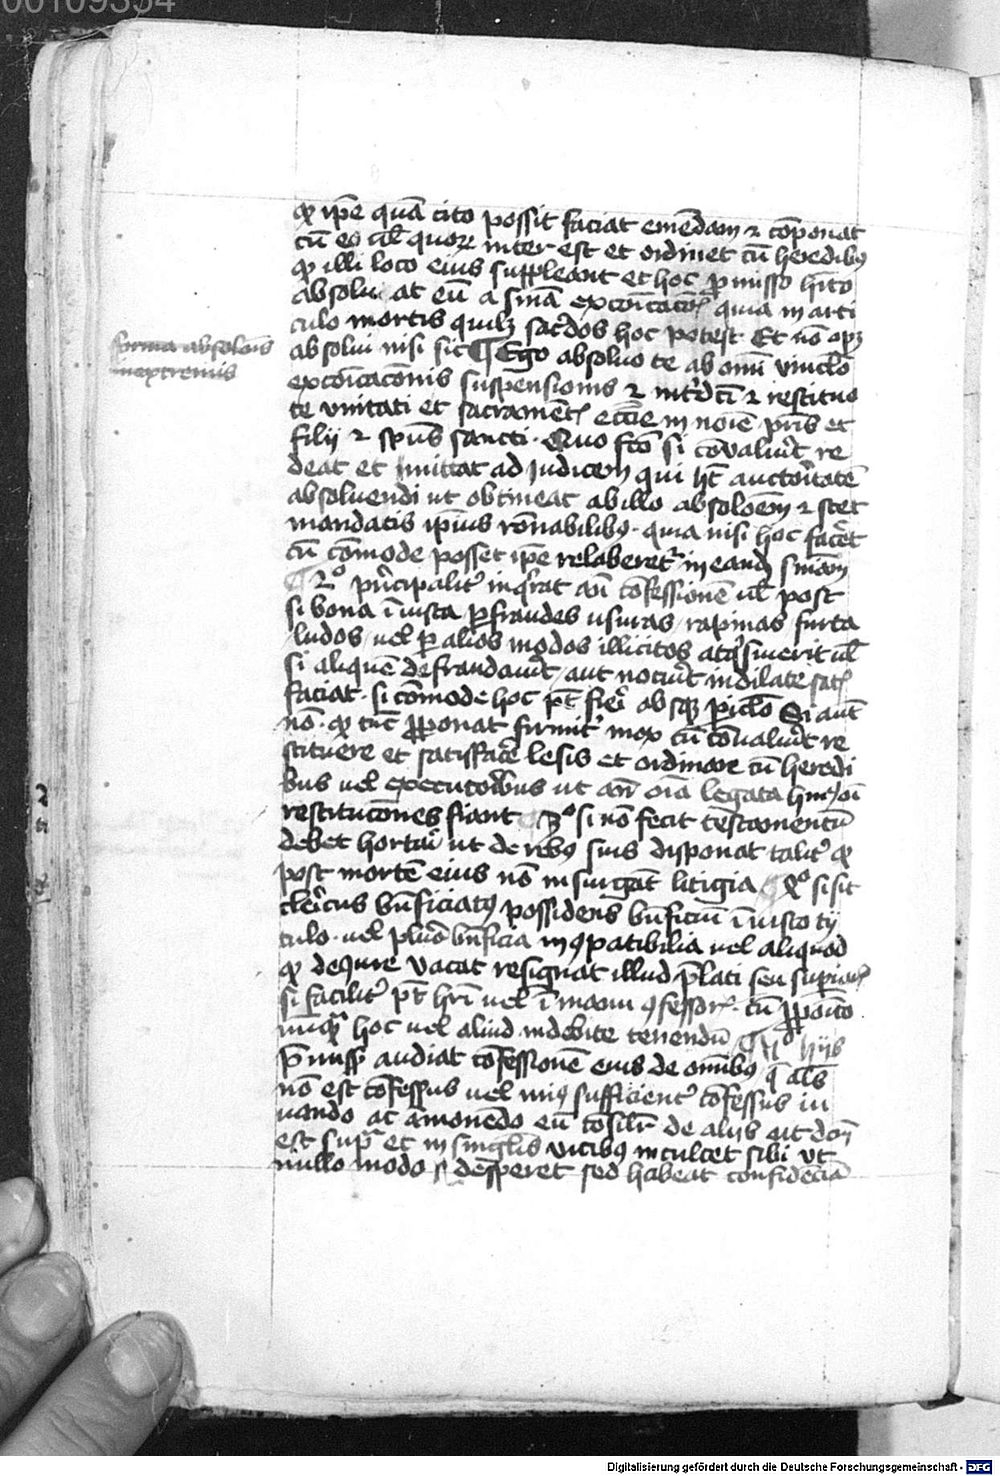 00109354
qꝫ ip̄e quā cito possit faciat emēdam ⁊ cōponat
cū eo ul̄ quoꝝ inter est et ordinet cū heredibꝰ
qꝫ illi loco eius suppleant et hoc p̄misso h̄ito
absoluat eū a sn̄ia excōicacōꝭ quia in arti
culo mortis quilꝫ sac̄dos hoc potest Et nō opꝫ
absolui nisi sic ¶ Ego absoluo te ab om̄i vinc̄lo
excōicacōnis suspensionis ⁊ int̄dc̄i ⁊ restituo
te vnitati et sacramentꝭ ecc̄ie in noīe pr̄is et
filij ⁊ sp̄us sancti · Quo fc̄o si cōvalu̕it re
deat et mittat ad Judicem qui h̄t auctoritatē
absoluendi ut obtineat ab illo absoloēm ⁊ stet
mandatis ip̄ius rōnabilibꝰ · quia nisi hoc fac̄et
cū cōmode posset ip̄e relaberet᷑ in eandꝫ sn̄iam
¶ 2º pn̄cipalit̕ inq̄rat an̄ cōfessionē ul̄ post
si bona īiusta ꝑ fraudes usuras rapinas furta
ludos uel ꝑ alios modos illicitos atq̄siuerit ul̄
si aliquē defraudau̕it aut nocu̕it indilate satꝭ
faciat · si cōmode hoc pt̄ fieri absqꝫ ꝑic̄lo Si aut̄
nō · qꝫ tūc ꝓponat firmit̕ mox cū cōvalu̕it re
stituere et satisfac̄e lesis et ordinare cū heredi
bus uel executoribus ut an̄ oīa legata
restitucōnes fiant ¶ 3º si nō fecit testamentū
debet hortari ut de rebꝰ suis disponat talit̕ qꝫ
post mortē eius nō insurgāt litigia ¶ 4º si sit
clericus bn̄ficiatꝰ possidens bn̄ficiū īiusto ty
tulo · uel plura bn̄ficia inꝯpatibilia uel aliquod
qꝫ de iure vacat resignat illud p̄lati seu superiorꝭ
si facilit̕ pt̄ h̄ri uel ī manu ꝯfessorꝭ · cū ꝓpōito
nūqꝫ hoc uel aliud indebite tenendū ¶ Vº hijs
p̄missꝭ audiat cōfessionē eius de om̄ibꝰ q̄ al̄s
nō est cōfessus uel minꝰ sufficient̕ cōfessus iu
uando ac amonēdo eū cōsilr̄ de alijs ut dcm̄
est supra et in singulis vicibꝰ inculcet sibi ut
nullo modo desperet sed habeat confidēcia
forma absoluēs
in extremis
Digitalisierung gefördert durch die Deutsche Forschungsgemeinschaft - DFG